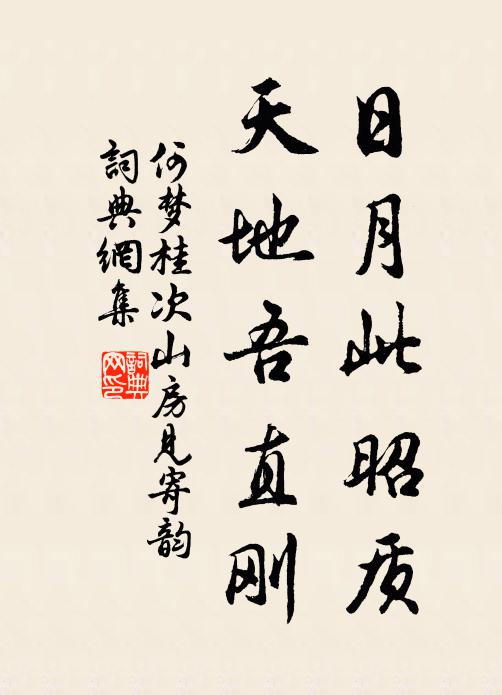 日月此昭质
天地吾直刚
何梦桂次山房见寄韵
詞典網集
詞典网印